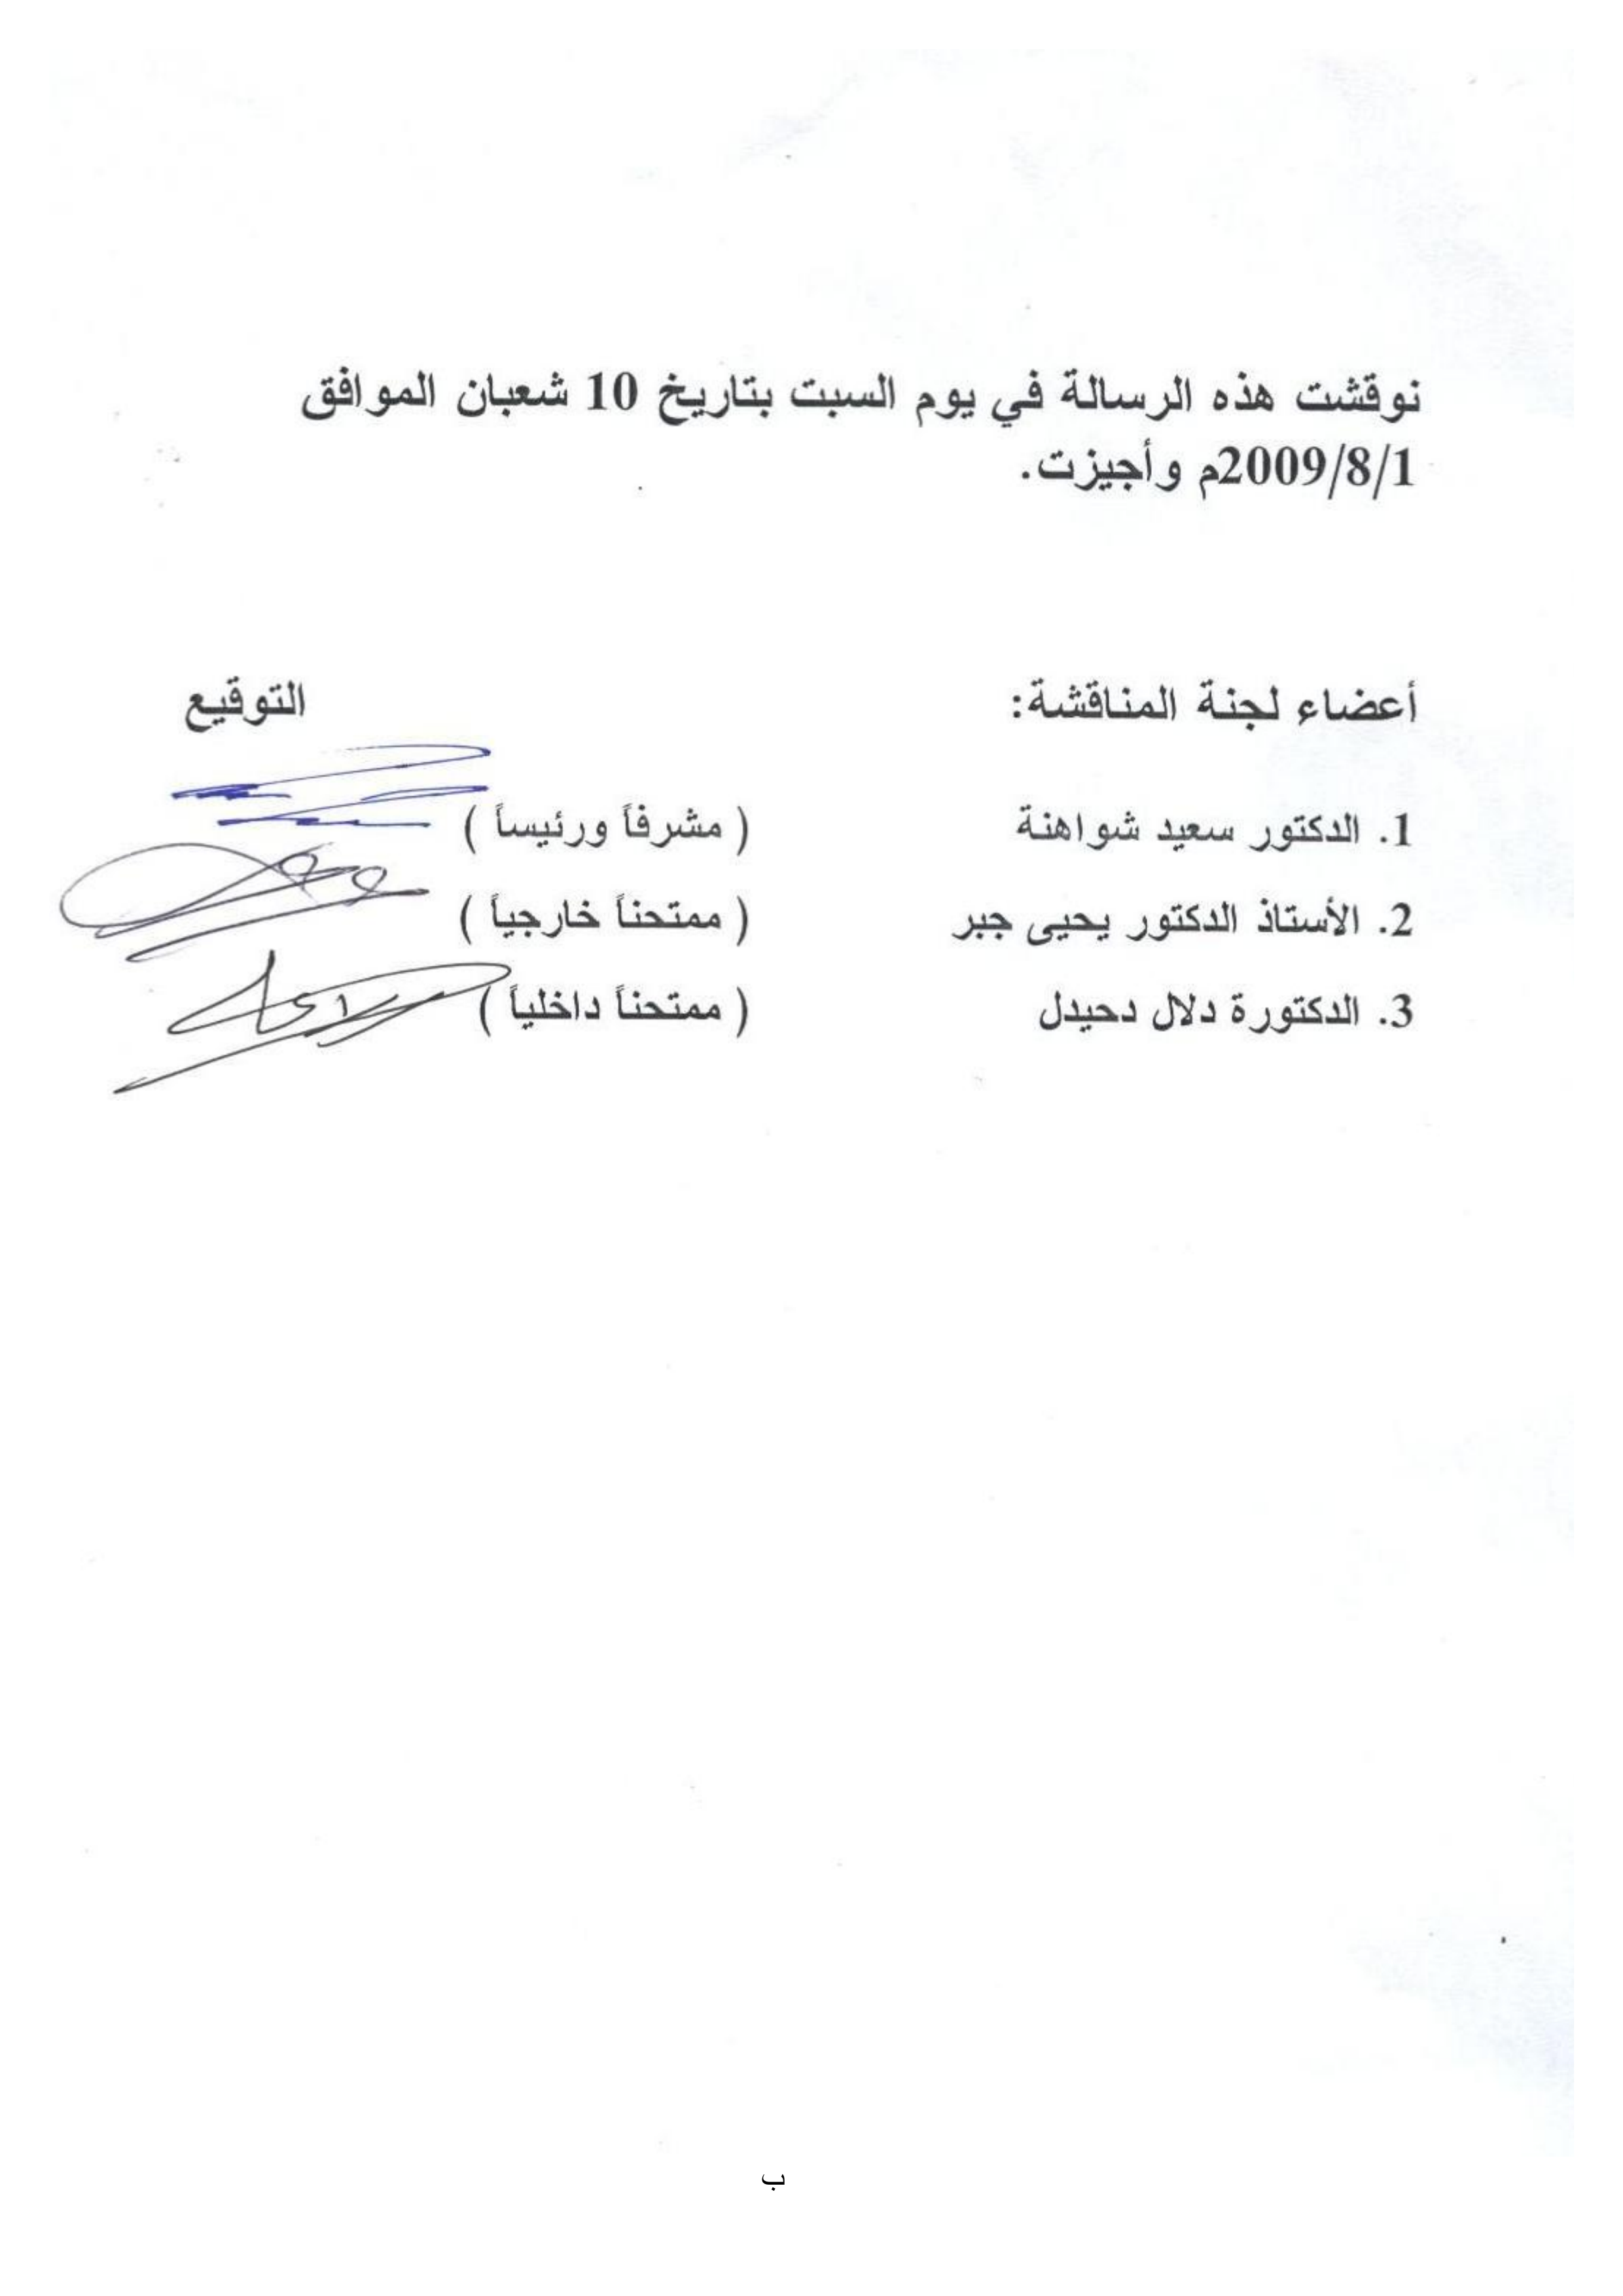 نوقشت هذه الرسالة في يوم السبت بتاريخ 10 شعبان الموافق
2009/8/1م وأجيزت.
أعضاء لجنة المناقشة: التوقيع
1. الدكتور سعيد شواهنة ( مشرفاً ورئيساً )
2. الأستاذ الدكتور يحيى جبر ( ممتحناً خارجياً )
3. الدكتورة دلال دحيدل ( ممتحناً داخلياً )
ب